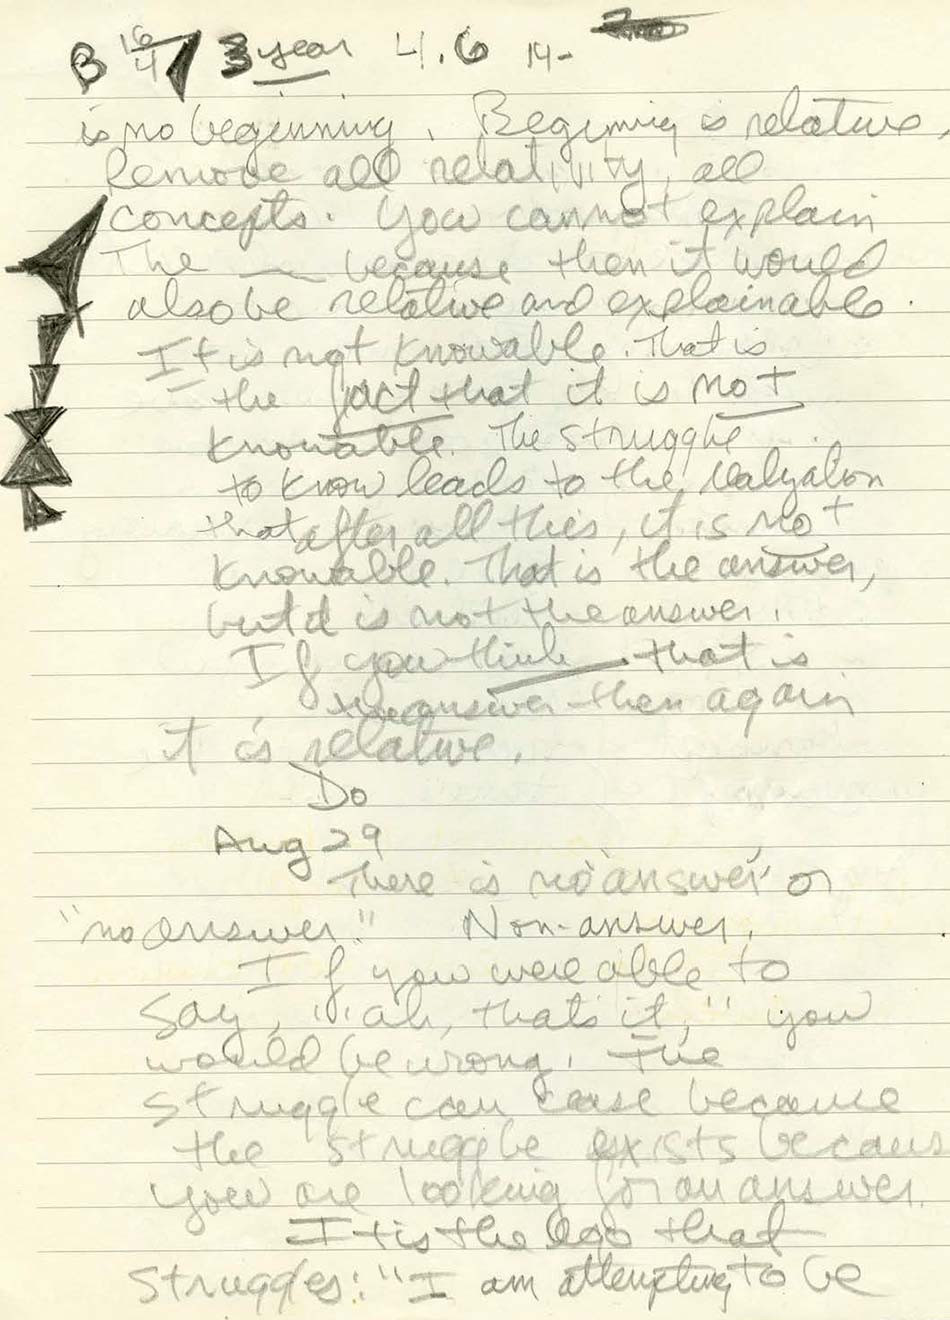 B 16/4 3 year 4.6 14-
is no beginning. Beginning is relative.
Remove all relativity, all
concepts. You cannot explain
The __ because then it would
also be relative and explainable.
It is not knowable. That is
the fact that it is not
knowable. The struggle
to know leads to the
that after all this, it is not
knowable. That is the answer,
but it is not the answer.
If you think that is
the answer then again
it is relative.
Do
Aug 29
There is no "answer" or
"no answer." Non-answer.
If you were able to
say, "ah, that's it," you
would be wrong. The
struggle can cease because
the struggle exists becaus
you are looking for an answer.
It is the ego that
struggles: "I am attempting to be